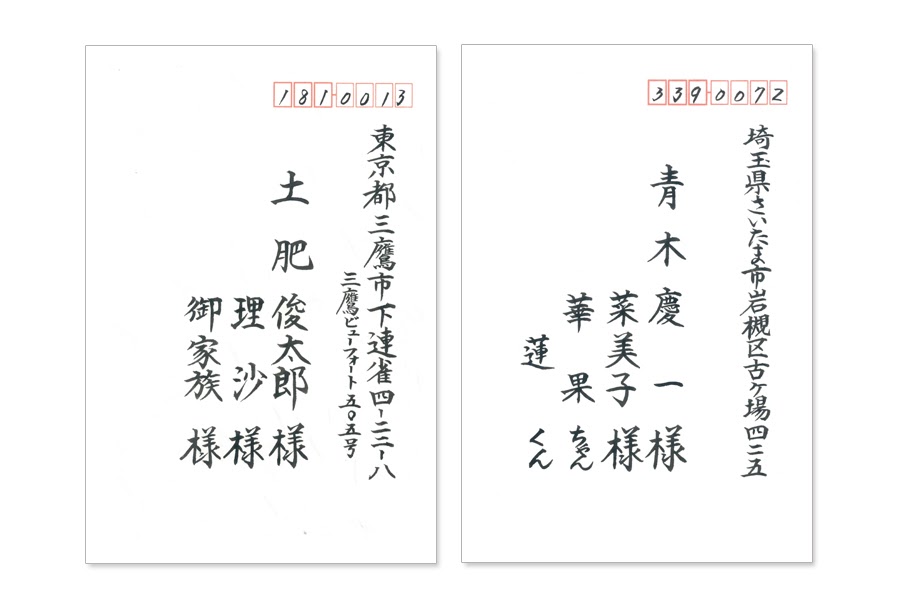 1810013
東京都三鷹市下連雀四-二二-八
三鷹ビューフォート五〇五号
土肥俊太郎様
理沙様
御家族様
3390072
埼玉県さいたま市岩槻区古ヶ場四二五
青木慶一様
菜美子様
華果ちゃん
蓮くん